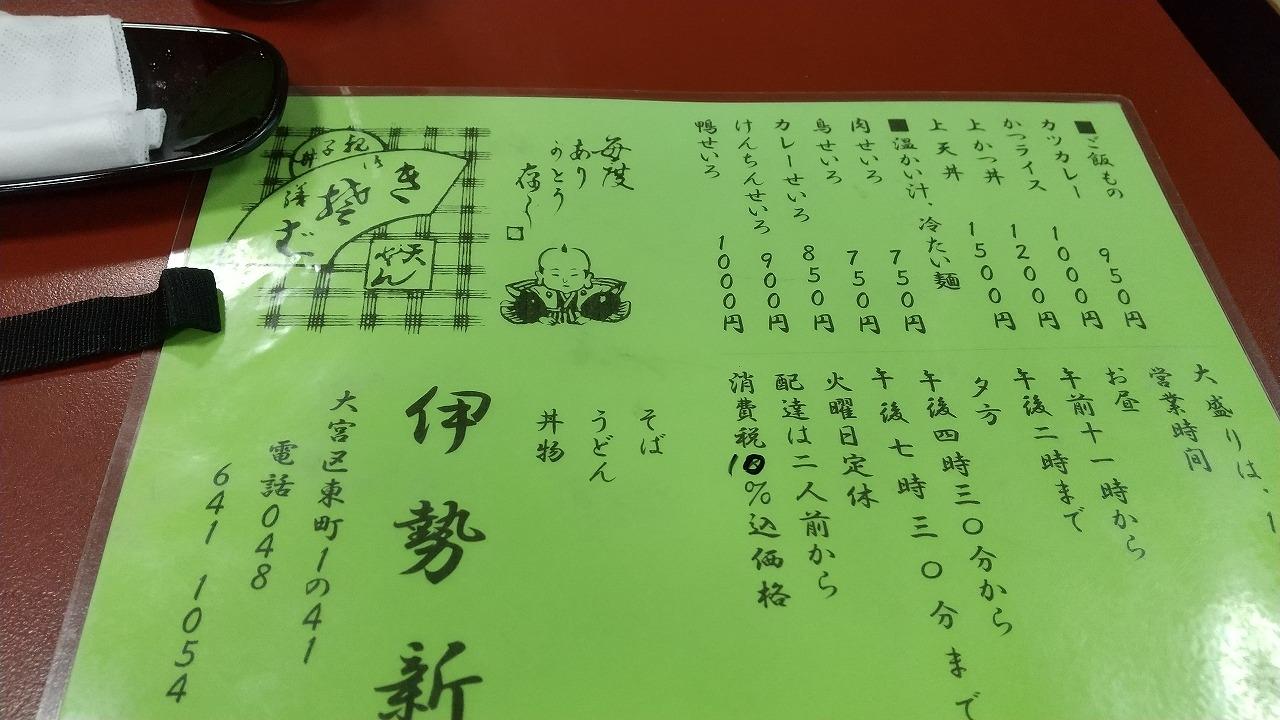 ■ご飯もの
カツカレー 950円
かつライス 1000円
上かつ丼 1200円
上天丼 1500円
■温かい汁、冷たい麺
肉せいろ 750円
鳥せいろ 750円
カレーせいろ 850円
けんちんせいろ 900円
鴨せいろ 1000円
毎度
あり
がとう
存じ
天
せん
き
そ
ば
御
膳
親子
丼
大盛りは、1
営業時間
お昼
午前十一時から
午後二時まで
夕方
午後四時三〇分から
午後七時三〇分まで
火曜日定休
配達は二人前から
消費税10%込価格
そば
うどん
丼物
伊勢新
大宮区東町1の41
電話048
641 1054